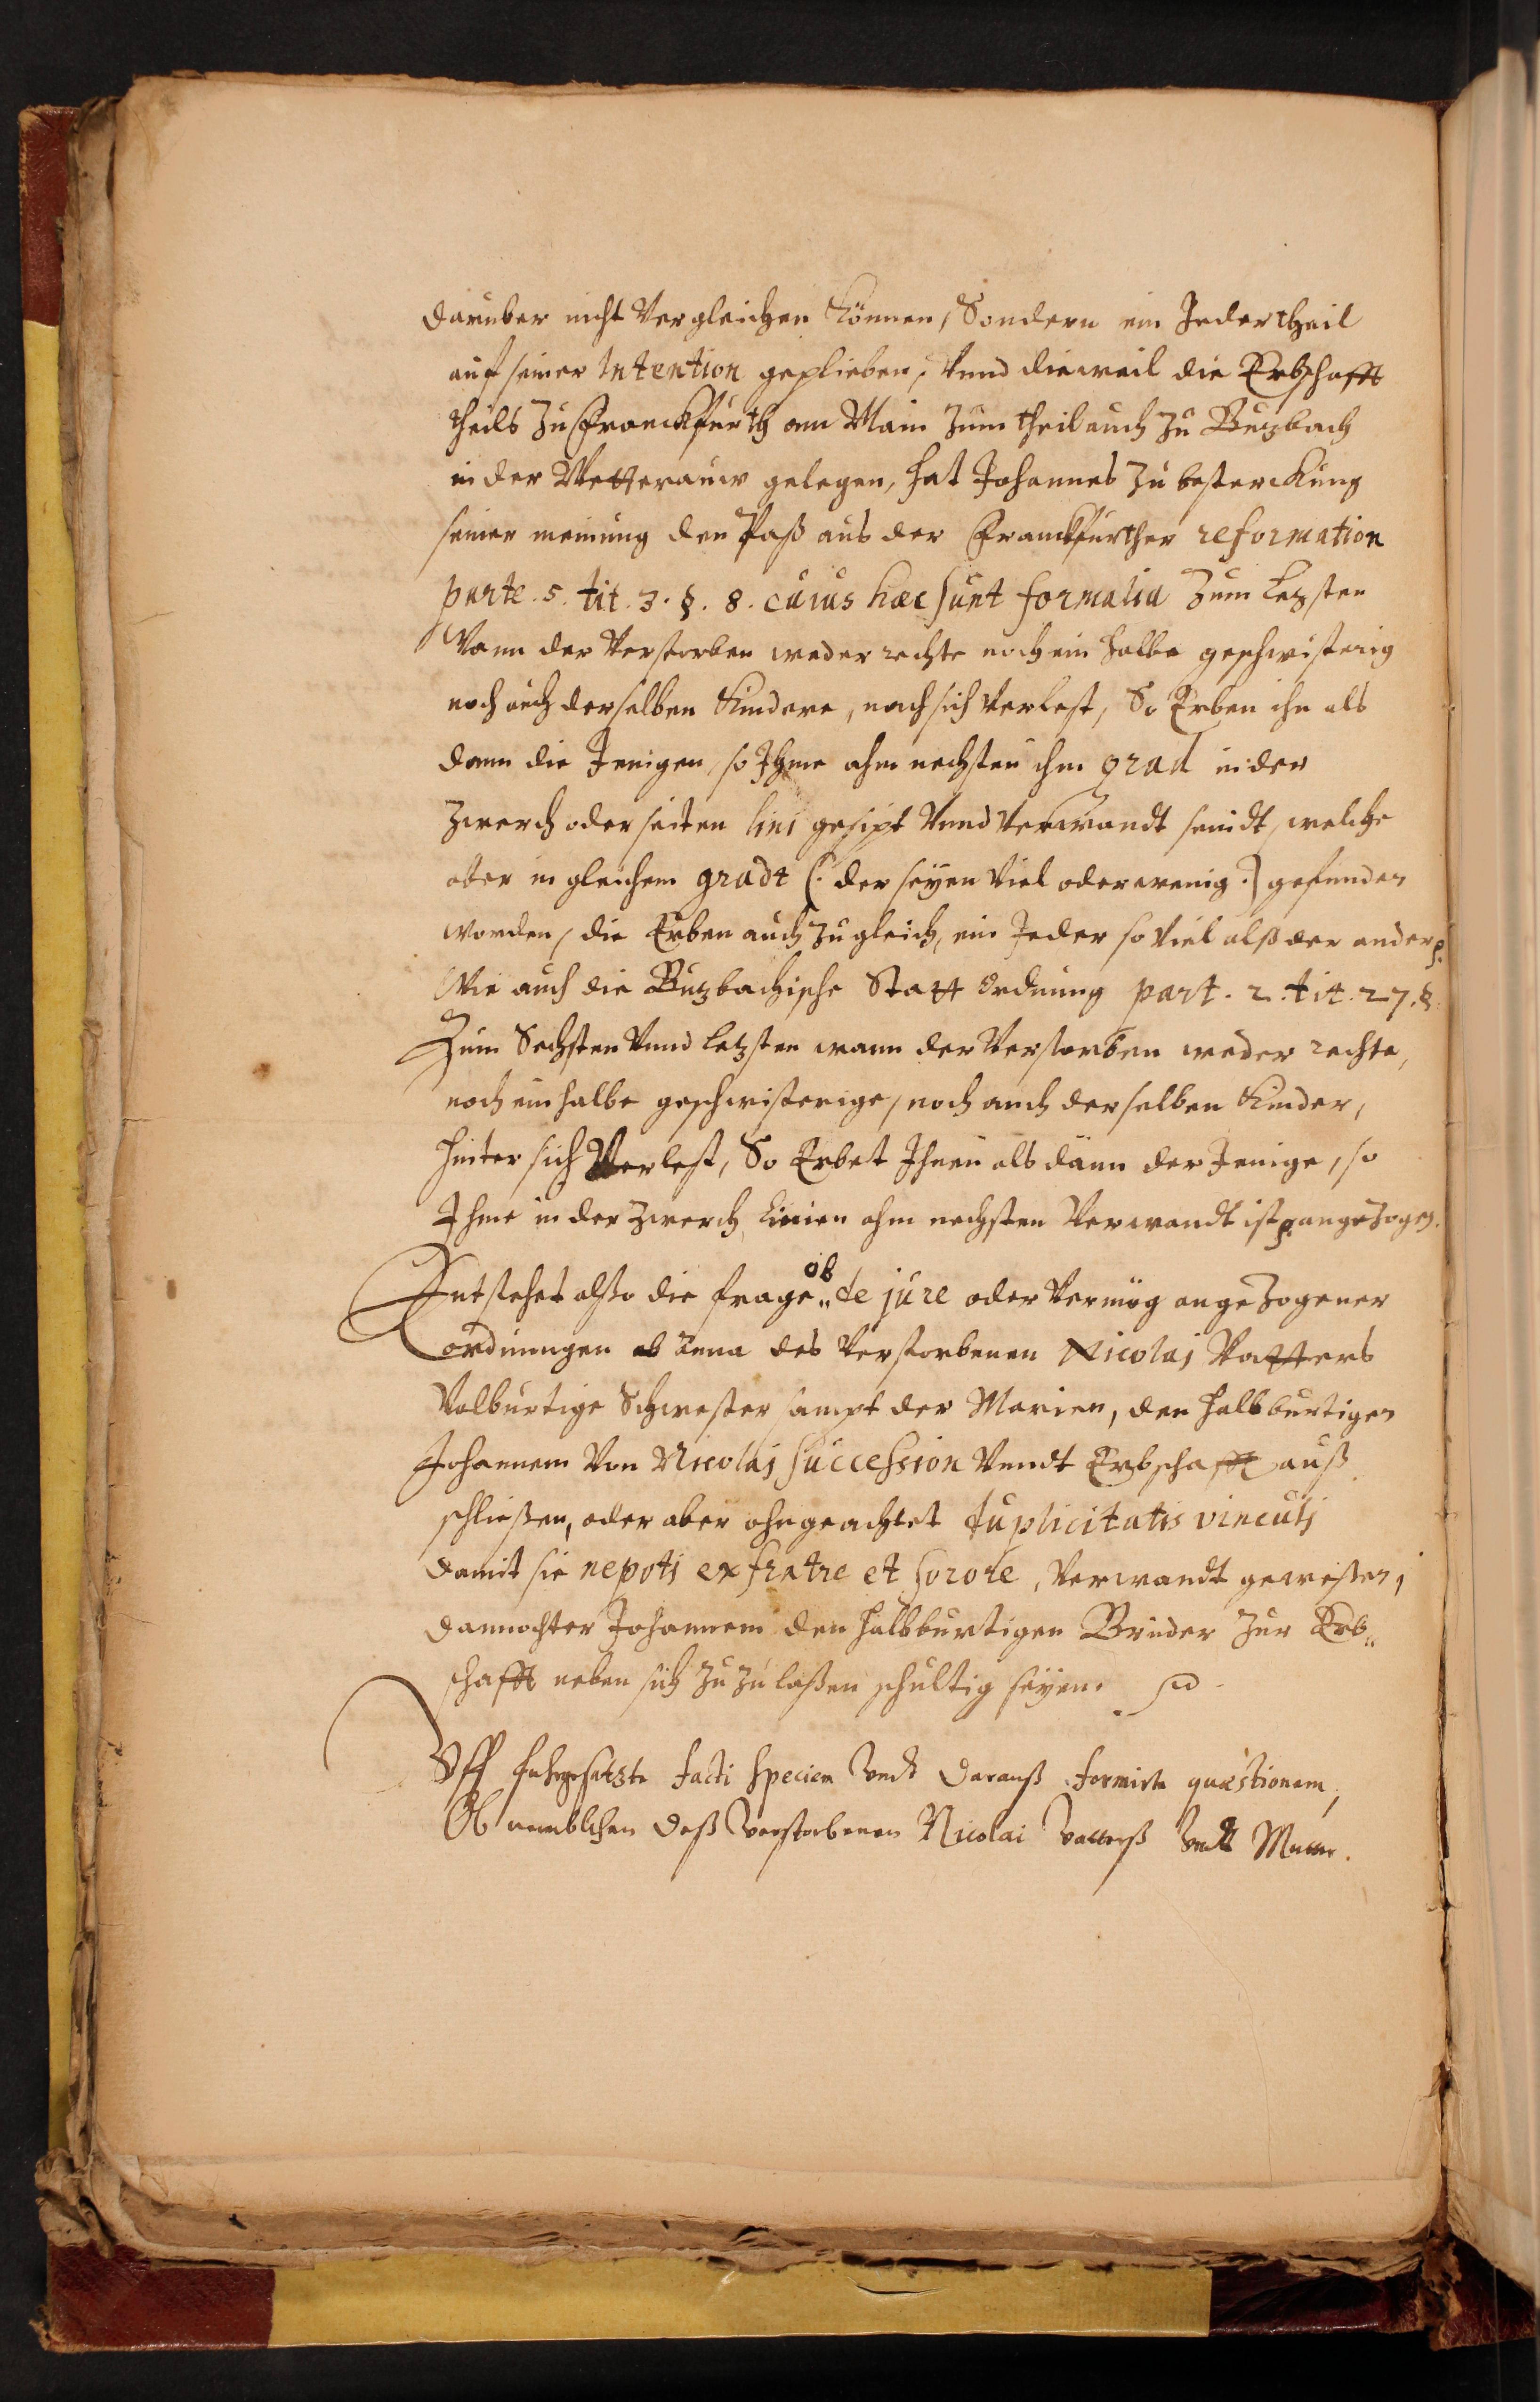 daruber nicht Vergleichen können, Sondern ein Jeder theil
auf seiner Intention geplieben, Vnnd dieweil die Erbschafft
theils zu Franckfurth am Main zum theil auch zu Butzbach
in der Wetterauw gelegen, hat Johannes zu besterckung
seiner meinung den Paß aus der Franckfurther reformation
parte. 5. tit. 3. §. 8. cuius hæc sunt formalia Zum Letzsten
Wann der Verstorben weder rechte noch ein halbe geschwisterig
noch auch derselben Kindere, nach sich Verlest, So Erben ihn als
dann die Jenigen, so Ihme ahm nechsten ihm grad in der
Zwerch oder seiten lini gesipt Vnnd Verwandt seindt, welche
aber in gleichem gradt (: der seyen Viel oder wenig :) gefunden
worden, die Erben auch zugleich, ein Jeder so Viel alß der ander
Wie auch die Butzbachische Statt Ordnung part. 2. tit. 27. §.
Zum Sechsten Vnnd letzsten wann der Verstorben weder rechte,
noch ein halbe geschwisterige, noch auch derselben Kinder,
hinter sich Verlest, So Erbet Ihnen als dann der Jenige, so
Ihme in der Zwerch Linien ahm nechsten Verwandt ist angezogen.
Entstehet also die frage ob de jure oder Vermög angezogener
ordnungen ob Anna des Verstorbenen Nicolaj Vatters
Volburtige Schwester sampt der Marien, den halbburtigen
Johannem Von Nicolaj Succession Vnndt Erbschafft auß
schließen, oder aber ohngeachtet duplicitatis vinculj
damit sie nepotj ex fratre et sorore, Verwandt gewesen,
dannochter Johannem den halbburtigen Bruder zur Erb„
schafft neben sich zu zu laßen schultig seyen.
Vff fuhrgesatzte facti speciem vndt darauß formirte quæstionem,
Ob nemblichen deß verstorbenen Nicolai vatterß vndt Mutter